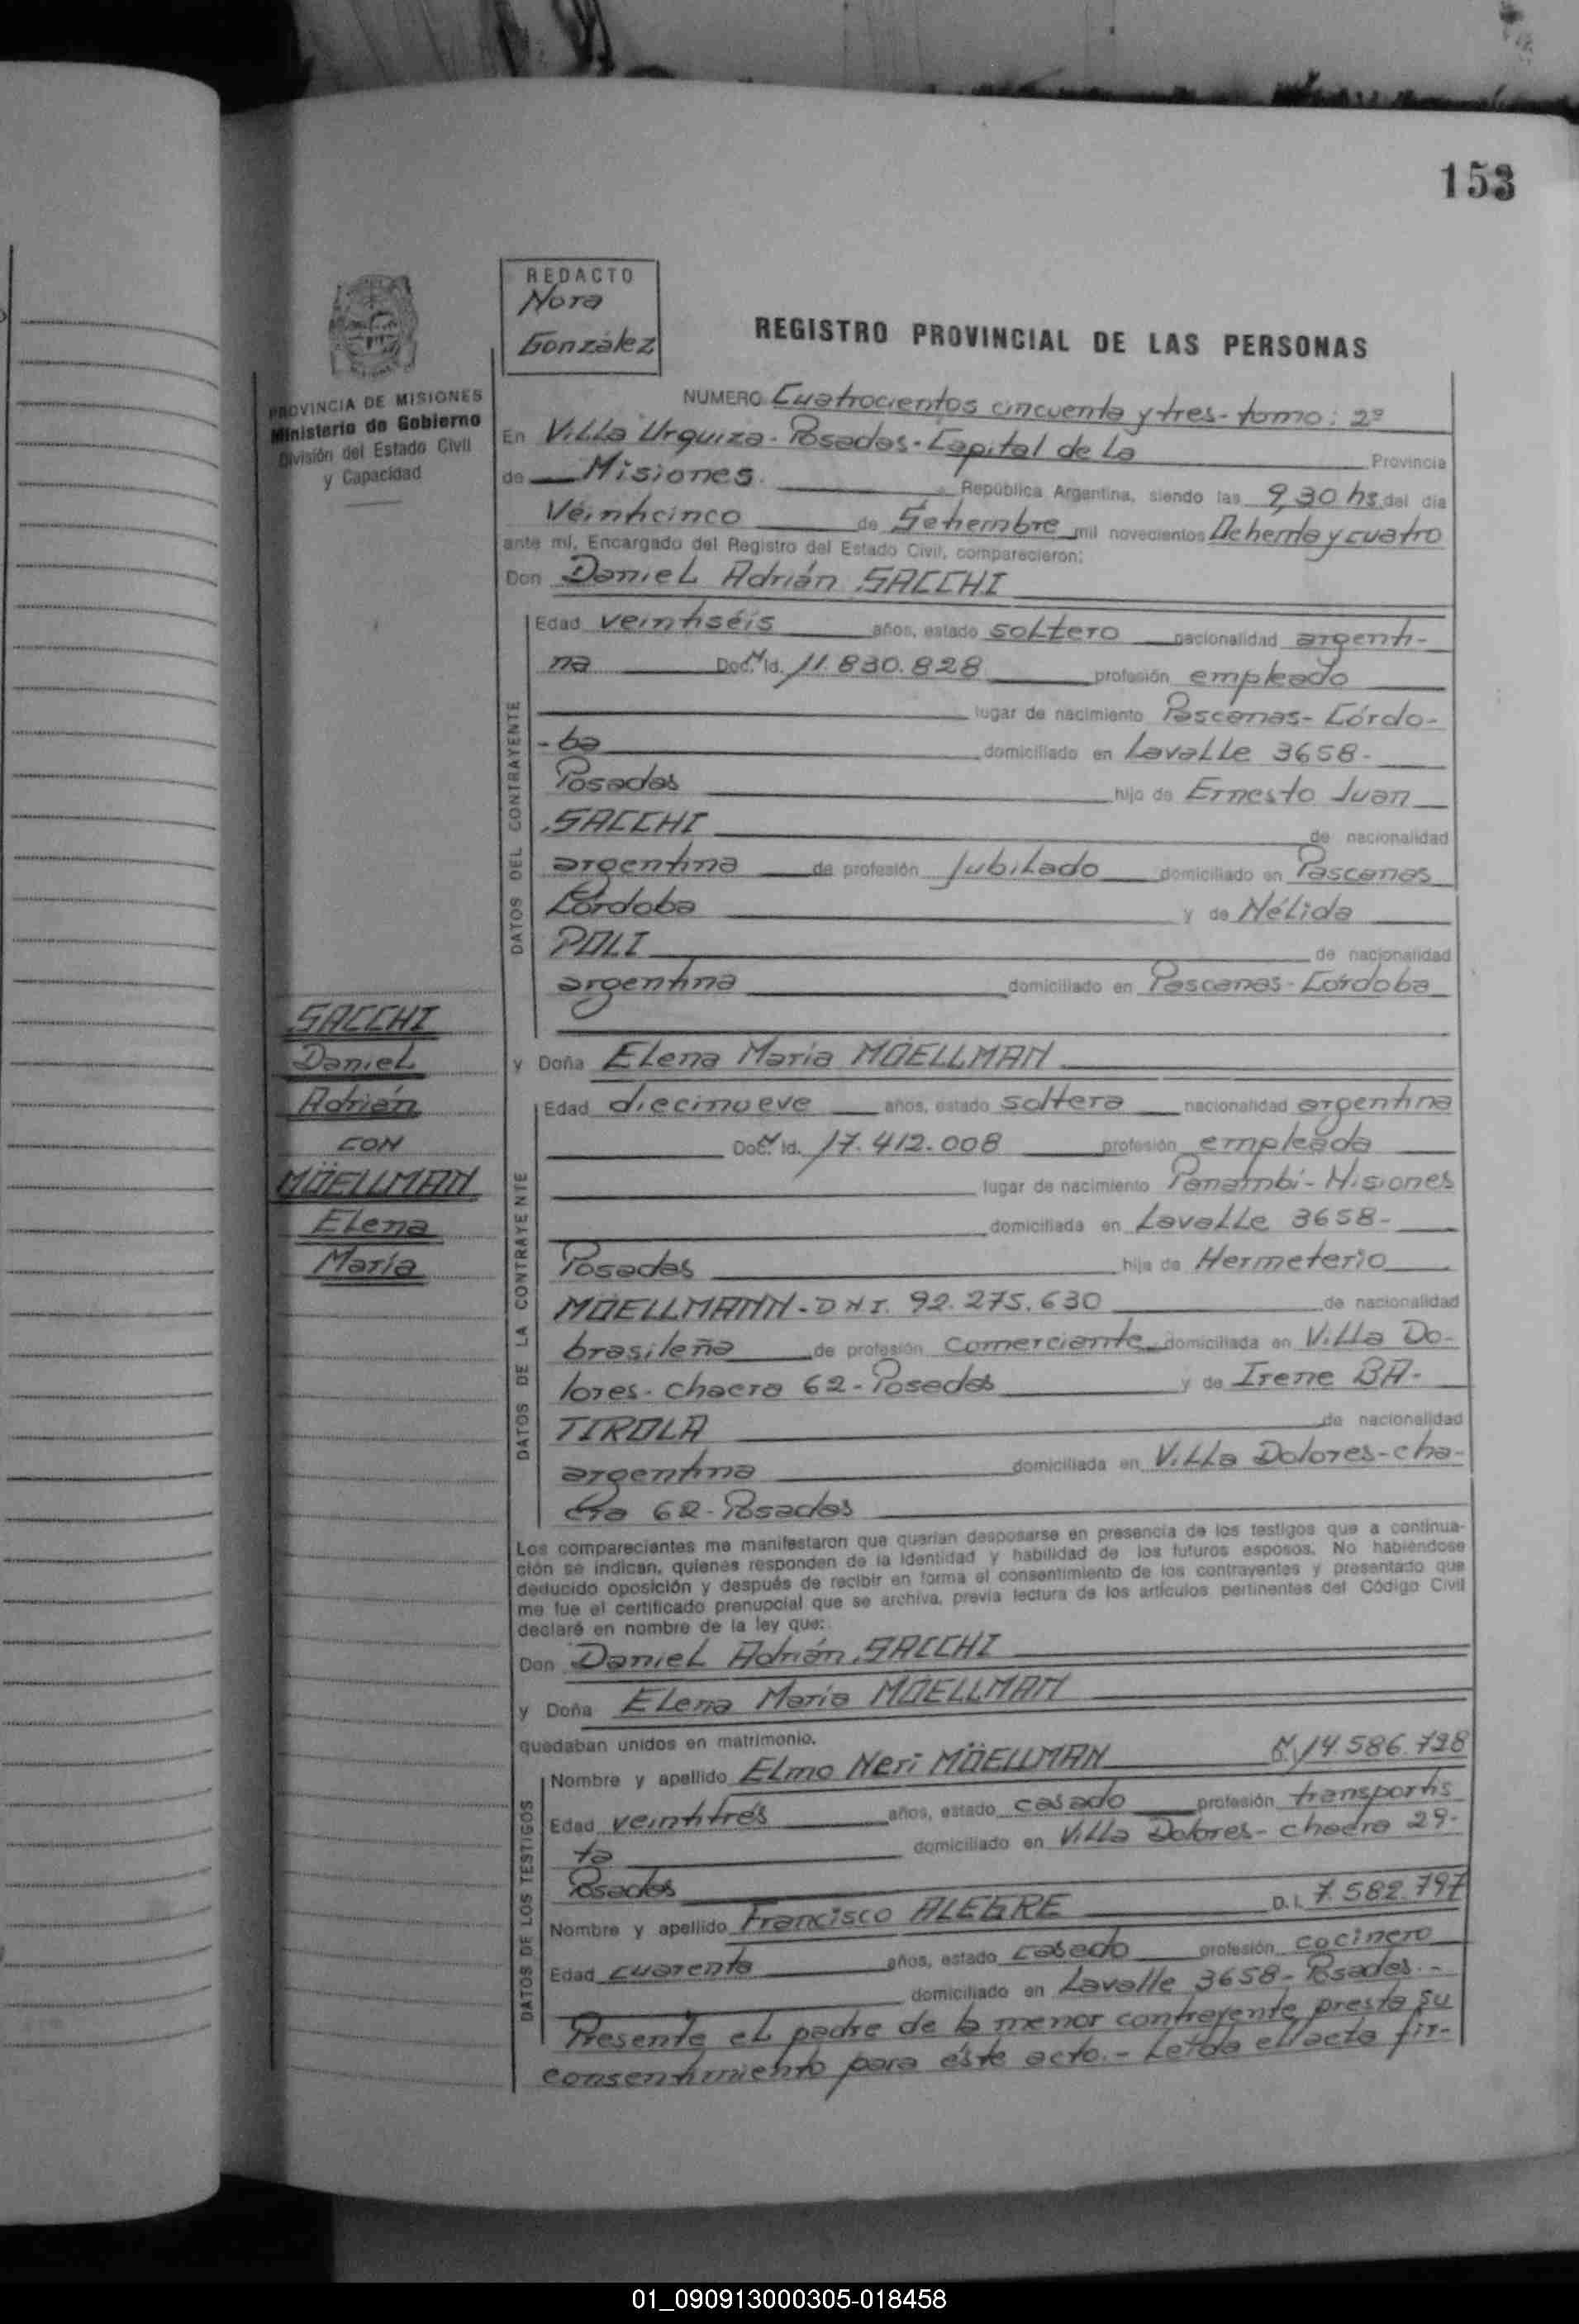 153
REDACTO
Nora
González
REGISTRO PROVINCIAL DE LAS PERSONAS
PROVINCIA DE MISIONES
Ministerio de Gobierno
División del Estado Civil
y Capacidad
NUMERO Cuatrocientos cincuenta y tres - tomo: 2º
En Villa Urquiza - Posadas - Capital de La Provincia
de Misiones. República Argentina, siendo las 9,30 hs. del día
Veinticinco de Setiembre mil novecientos Ochenta y cuatro
ante mí, Encargado del Registro del Estado Civil, comparecieron:
Don Daniel Adrián SACCHI
DATOS DEL CONTRAYENTE
Edad veintiséis años, estado soltero nacionalidad argenti-
na Doc. Id. 11.830.828 profesión empleado
lugar de nacimiento Pascanas - Córdo-
- ba domiciliado en Lavalle 3658 -
Posadas hijo de Ernesto Juan
SACCHI de nacionalidad
argentina de profesión Jubilado domiciliado en Pascanas
Córdoba y de Nélida
POLI de nacionalidad
argentina domiciliado en Pascanas - Córdoba
SACCHI
Daniel
Adrián
CON
MÖELLMAN
Elena
María
y Doña Elena María MÖELLMAN
DATOS DE LA CONTRAYENTE
Edad diecinueve años, estado soltera nacionalidad argentina
Doc. Id. 17.412.008 profesión empleada
lugar de nacimiento Panambí - Misiones
domiciliada en Lavalle 3658 -
Posadas hija de Hermeterio
MOELLMANN - DNI. 92.275.630 de nacionalidad
brasileña de profesión comerciante domiciliada en Villa Do-
lores - chacra 62 - Posadas y de Irene BA-
TIROLA de nacionalidad
argentina domiciliada en Villa Dolores - cha-
cra 62 - Posadas
Los comparecientes me manifestaron que querían desposarse en presencia de los testigos que a continua-
ción se indican, quienes responden de la identidad y habilidad de los futuros esposos. No habiéndose
deducido oposición y después de recibir en forma el consentimiento de los contrayentes y presentado que
me fue el certificado prenupcial que se archiva, previa lectura de los artículos pertinentes del Código Civil
declaré en nombre de la ley que:
Don Daniel Adrián SACCHI
y Doña Elena María MOELLMAN
quedaban unidos en matrimonio.
DATOS DE LOS TESTIGOS
Nombre y apellido Elmo Neri MÖELLMAN 14.586.798
Edad veintitrés años, estado casado profesión transportis
ta domiciliado en Villa Dolores - chacra 29 -
Posadas
Nombre y apellido Francisco ALEGRE D. I. 7.582.797
Edad cuarenta años, estado casado profesión cocinero
domiciliado en Lavalle 3658 - Posadas. -
Presente el padre de la menor contrayente, presta su
consentimiento para éste acto. - Leída el acta fir-
01_090913000305-018458